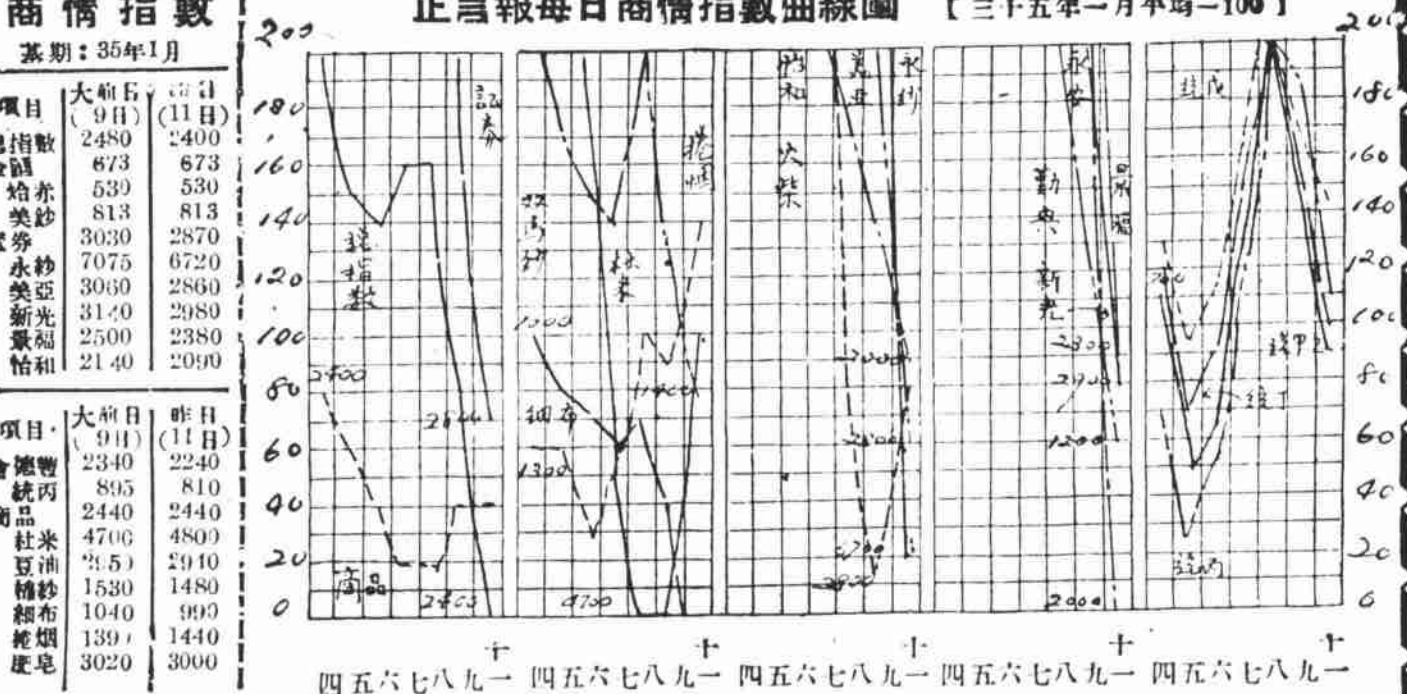 商情指數
基期：35年1月
項目 大前日(9日) 昨日(11日)
總指數 2480 2400
673 673
焓赤 530 530
美鈔 813 813
券 3030 2870
永紗 7075 6720
美亞 3060 2860
新光 3140 2980
景福 2500 2380
怡和 2140 2090
項目 大前日(9日) 昨日(11日)
德豐 2340 2240
統丙 895 810
商品 2440 2440
杜米 4700 4800
豆油 2950 2940
棉紗 1530 1480
細布 1040 990
捲烟 1390 1440
肥皂 3020 3000
正言報每日商情指數曲線圖 【三十五年一月平均－100】
200
180
160
140
120
100
80
60
40
20
0
總指數
2400
商品
2400
證券
雙馬紗
1000
細布
1300
4700
杜米
1400
捲烟
怡和
火柴
美亞
永紗
永安
勤興
新光
景福
2300
2900
1200
2000
統戊
統甲
統丁
統丙
200
180
160
140
120
100
80
60
40
20
0
四五六七八九十一
四五六七八九十一
四五六七八九十一
四五六七八九十一
四五六七八九十一